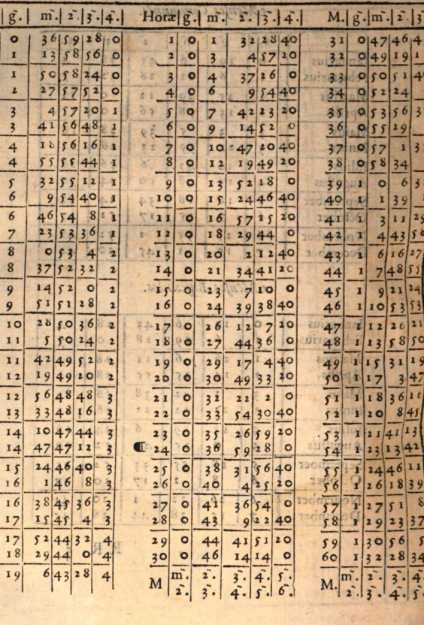 g. m. 2. 3. 4. Horæ g. m. 2. 3. 4. M. g. m. 2. 3
0 36 59 28 0 1 0 1 32 28 40 31 0 47 46 4
1 13 58 56 0 2 0 3 4 57 20 32 0 49 19 1
1 50 58 24 0 3 0 4 37 26 0 33 0 50 51 4
2 27 57 52 0 4 0 6 9 54 40 34 0 52 24
3 4 57 20 1 5 0 7 42 23 20 35 0 53 56 3
3 41 56 48 1 6 0 9 14 52 0 36 0 55 29
4 18 56 16 1 7 0 10 47 20 40 37 0 57 1 3
4 55 55 44 1 8 0 12 19 49 20 38 0 58 34
5 32 55 12 1 9 0 13 52 18 0 39 1 0 6 3
6 9 54 40 1 10 0 15 24 46 40 40 1 1 39
6 46 54 8 1 11 0 16 57 15 20 41 1 3 11 2
7 23 53 36 1 12 0 18 29 44 0 42 1 4 43 5
8 0 53 4 2 13 0 20 2 12 40 43 1 6 16 2
8 37 52 32 2 14 0 21 34 41 20 44 1 7 48 5
9 14 52 0 2 15 0 23 7 10 0 45 1 9 21 2
9 51 51 28 2 16 0 24 39 38 40 46 1 10 53 5
10 28 50 36 2 17 0 26 12 7 20 47 1 12 26 21
11 5 50 24 2 18 0 27 44 36 0 48 1 13 58 5
11 42 49 52 2 19 0 29 17 4 40 49 1 15 31 1
12 19 49 20 2 20 0 30 49 33 20 50 1 17 3 4
12 56 48 48 3 21 0 32 22 2 0 51 1 18 36 1
13 33 48 16 3 22 0 33 54 30 40 52 1 20 8 4
14 10 47 44 3 23 0 35 26 59 20 53 1 21 41 1
14 47 47 12 3 24 0 36 59 28 0 54 1 23 13 4
15 24 46 40 3 25 0 38 31 56 40 55 1 24 46 1
16 1 46 8 3 26 0 40 4 25 20 56 1 26 18 3
16 38 45 36 3 27 0 41 36 54 0 57 1 27 51 8
17 15 45 4 3 28 0 43 9 22 40 58 1 29 23 3
17 52 44 32 4 29 0 44 41 51 20 59 1 30 56 5
18 29 44 0 4 30 0 46 14 14 0 60 1 32 28 3
19 6 43 28 4 M m. 2. 3. 4. 5. M. m. 2. 3. 4.
2. 3. 4. 5. 6. 2. 3. 4. 5.